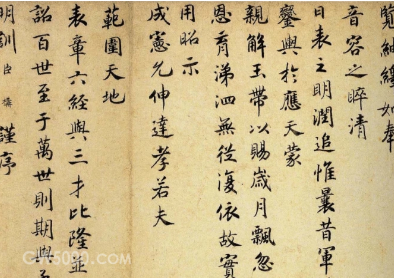 覧紬繹如奉
音容之睟清
日表之明潤追惟曩昔軍
鑾輿於應天蒙
親解玉帶以賜歲月飄忽
恩育涕泗無從復依故實
用昭示
成憲允伸達孝若夫
範圍天地
表章六經與三才比隆並
詔百世至于萬世則期與
明訓臣構謹序